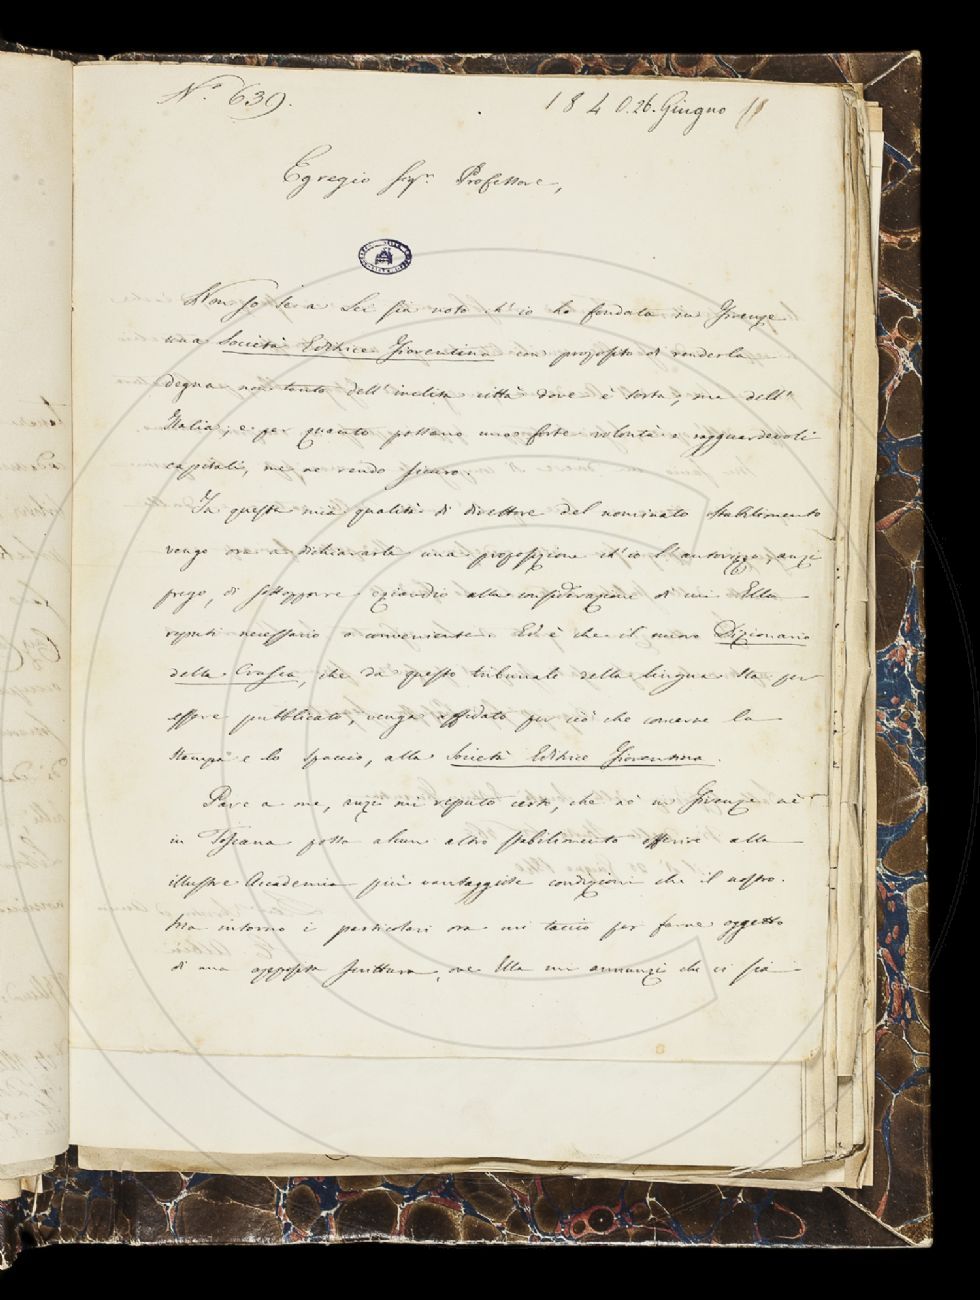 N.º 639.
1840. 26. Giugno
Egregio Sig.r Professore,
Non so se a Lei sia noto ch'io ho fondata in Firenze
una Società Editrice Fiorentina con proposito di renderla
degna non tanto dell'inclita città dove è sorta, ma dell'
Italia; e per quanto possano una forte volontà e ragguardevoli
capitali, me ne rendo sicuro.
In questa mia qualità di direttore del nominato stabilimento
vengo ora a dichiararle una proposizione ch'io l'autorizzo, anzi
prego, di sottoporre eziandio alla considerazione di cui Ella
reputi necessario o conveniente. Ed è che il nuovo Dizionario
della Crusca, che da questo tribunale della lingua sta per
essere pubblicato, venga affidato per ciò che concerne la
stampa e lo spaccio, alla Società Editrice Fiorentina.
Pare a me, anzi mi reputo certo, che nè in Firenze nè
in Toscana possa alcun altro stabilimento offerire alla
illustre Accademia più vantaggiose condizioni che il nostro.
Ma intorno i particolari ora mi taccio per farne oggetto
di una apposita scrittura, ove Ella mi annunzi che ci sia